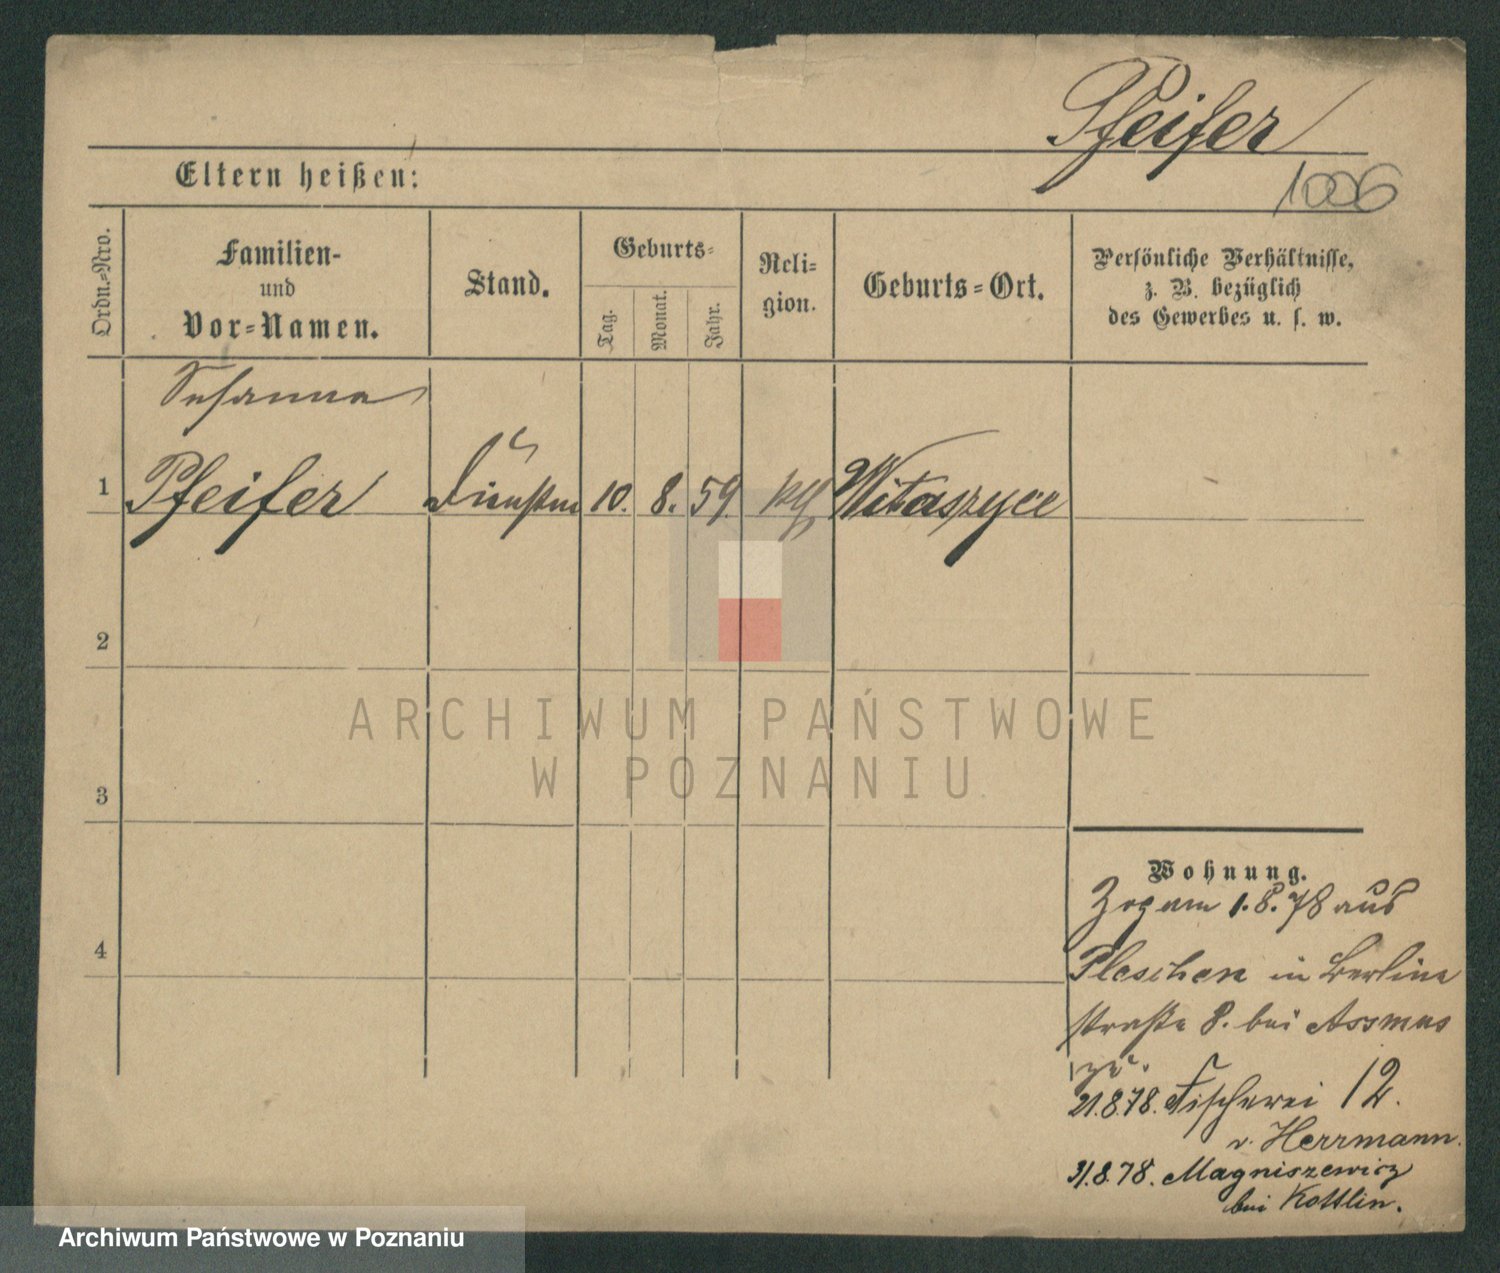 Pfeifer
1006
Eltern heißen:
Ordn.-Nro.
Familien-
und
Vor-Namen.
Stand.
Geburts-
Tag.
Monat.
Jahr.
Reli-
gion.
Geburts-Ort.
Persönliche Verhältnisse,
z. B. bezüglich
des Gewerbes u. s. w.
Susanna
1 Pfeifer 10. 8. 59. Witaszyce
2
3
4
ARCHIWUM PAŃSTWOWE
W POZNANIU
Wohnung.
Zog am 1.8.78 aus
Pleschen in Berliner
straße 8. bei Assmus
zu.
21.8.78. Fischerei 12.
v. Herrmann.
31.8.78. Magniszewicz
bei Kottlin.
Archiwum Państwowe w Poznaniu